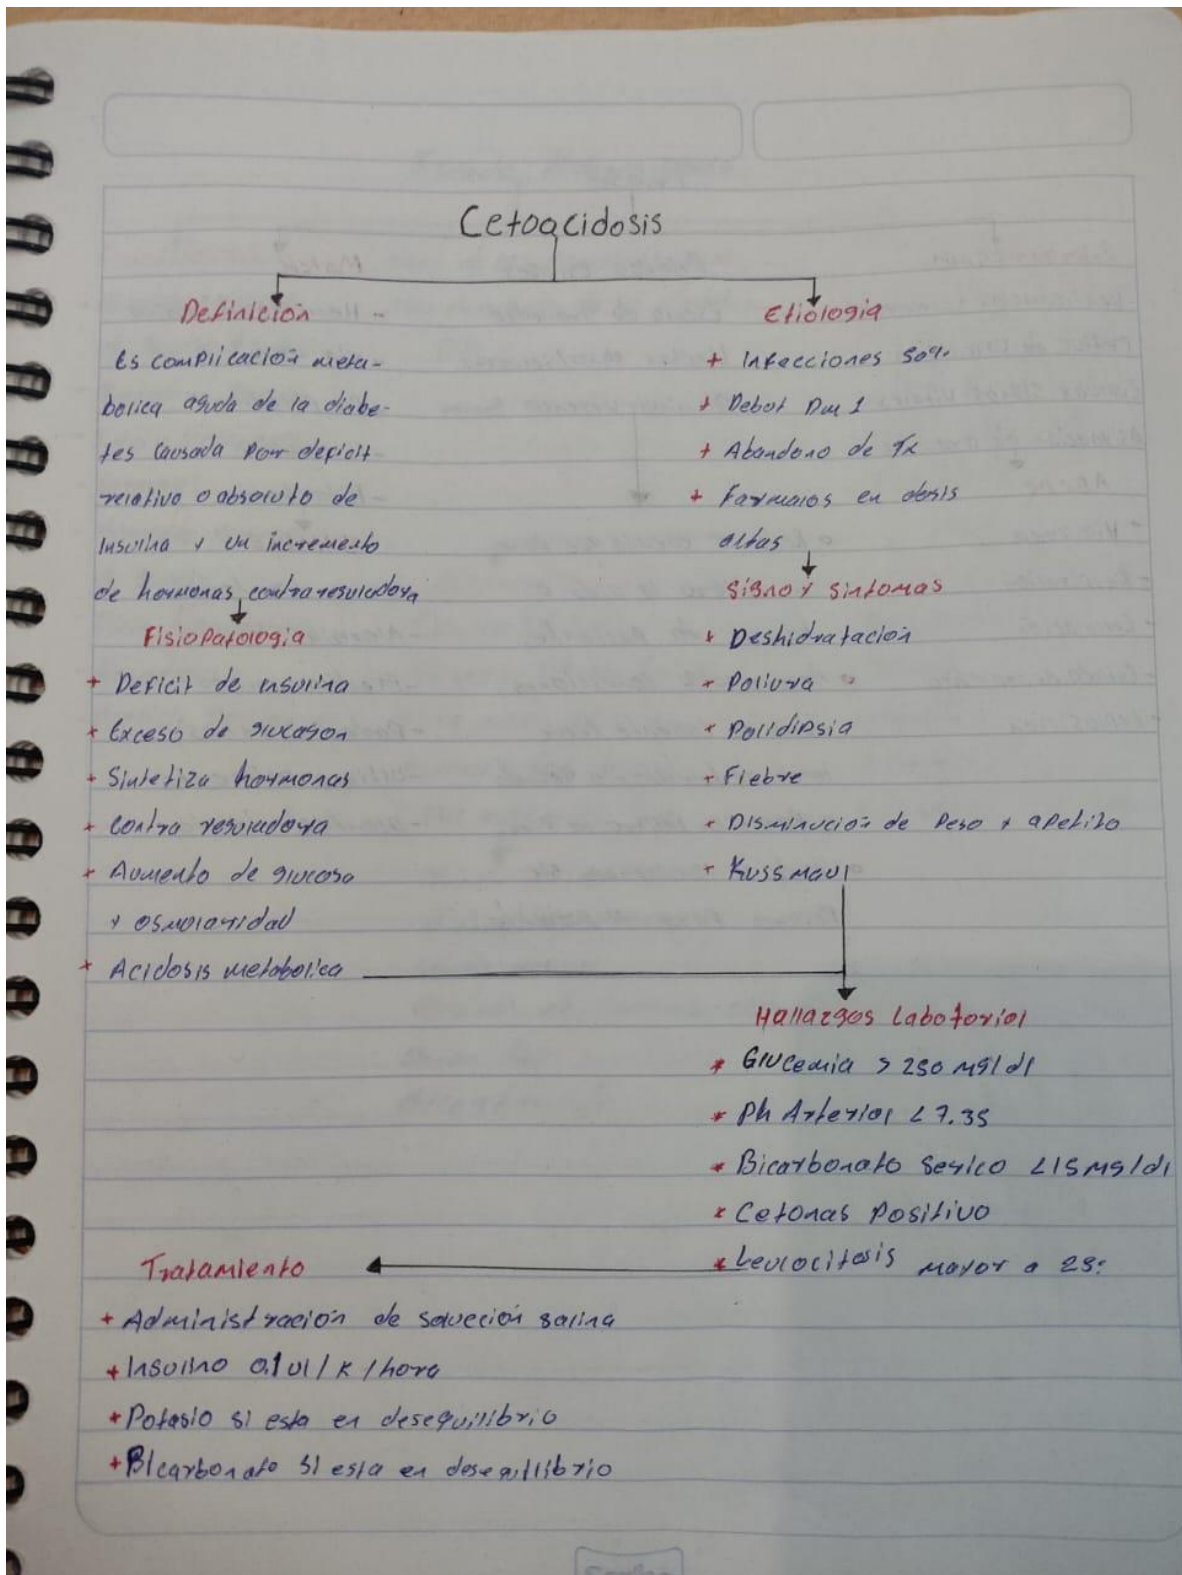 Cetoacidosis
Definición
Es complicación meta-
bolica aguda de la diabe-
tes causada por deficit
relativo o absoluto de
Insulina y un incremento
de hormonas contrareguladora
Fisiopatologia
+ Deficit de insulina
+ Exceso de glucagon
+ Sintetiza hormonas
+ Contra reguladora
+ Aumento de glucosa
y osmolaridad
+ Acidosis metabolica
Etiologia
+ Infecciones 50%
+ Debot Dm 1
+ Abandono de Tx
+ Farmacos en dosis
altas
Signo y Sintomas
+ Deshidratación
+ Poliura
+ Polidipsia
+ Fiebre
+ Disminución de Peso y apetito
+ Kussmaul
Hallazgos Labotorial
* Glucemia > 250 mg/dl
* Ph Arterial < 7.35
* Bicarbonato Serico < 15 mg/dl
* Cetonas Positivo
* Leucocitosis mayor a
Tratamiento
+ Administración de solución salina
+ Insulino 0.1 UI / K / hora
+ Potasio si esta en desequilibrio
+ Bicarbonato si esta en desequilibrio